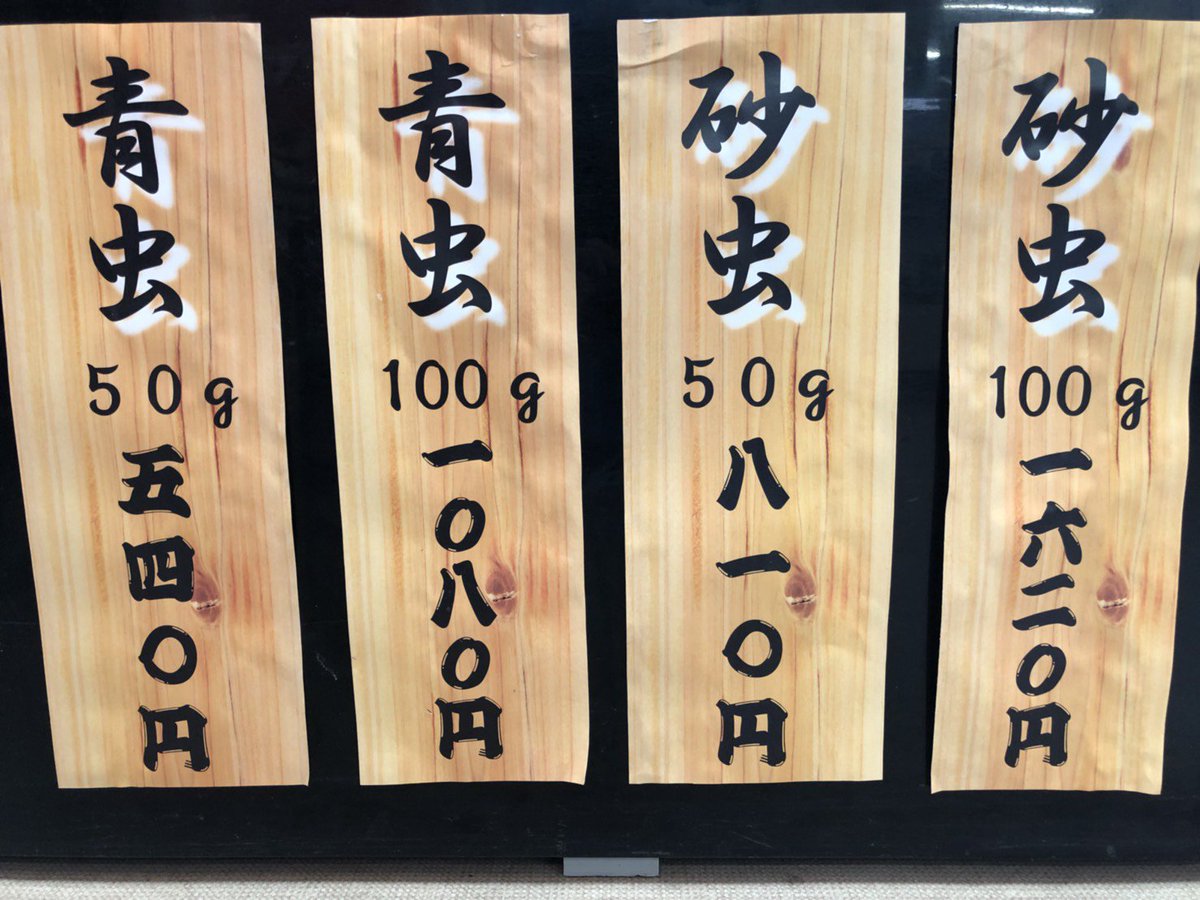 青虫
50g
五四〇円
青虫
100g
一〇八〇円
砂虫
50g
八一〇円
砂虫
100g
一六二〇円